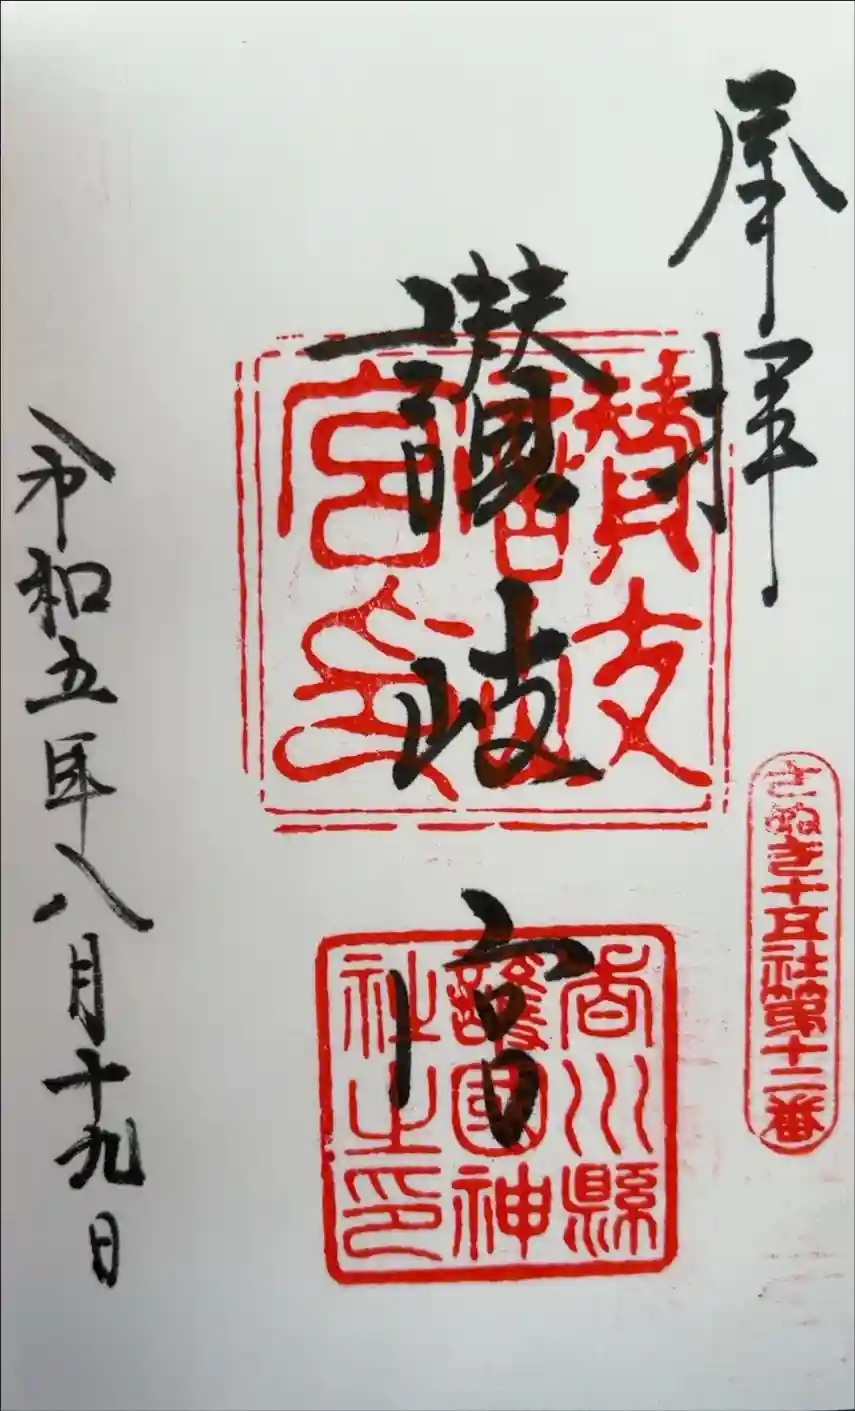 奉拝
さぬき十五社第十二番
讃岐宮
讃岐
宮印
香川縣
護國神
社之印
令和五年八月十九日